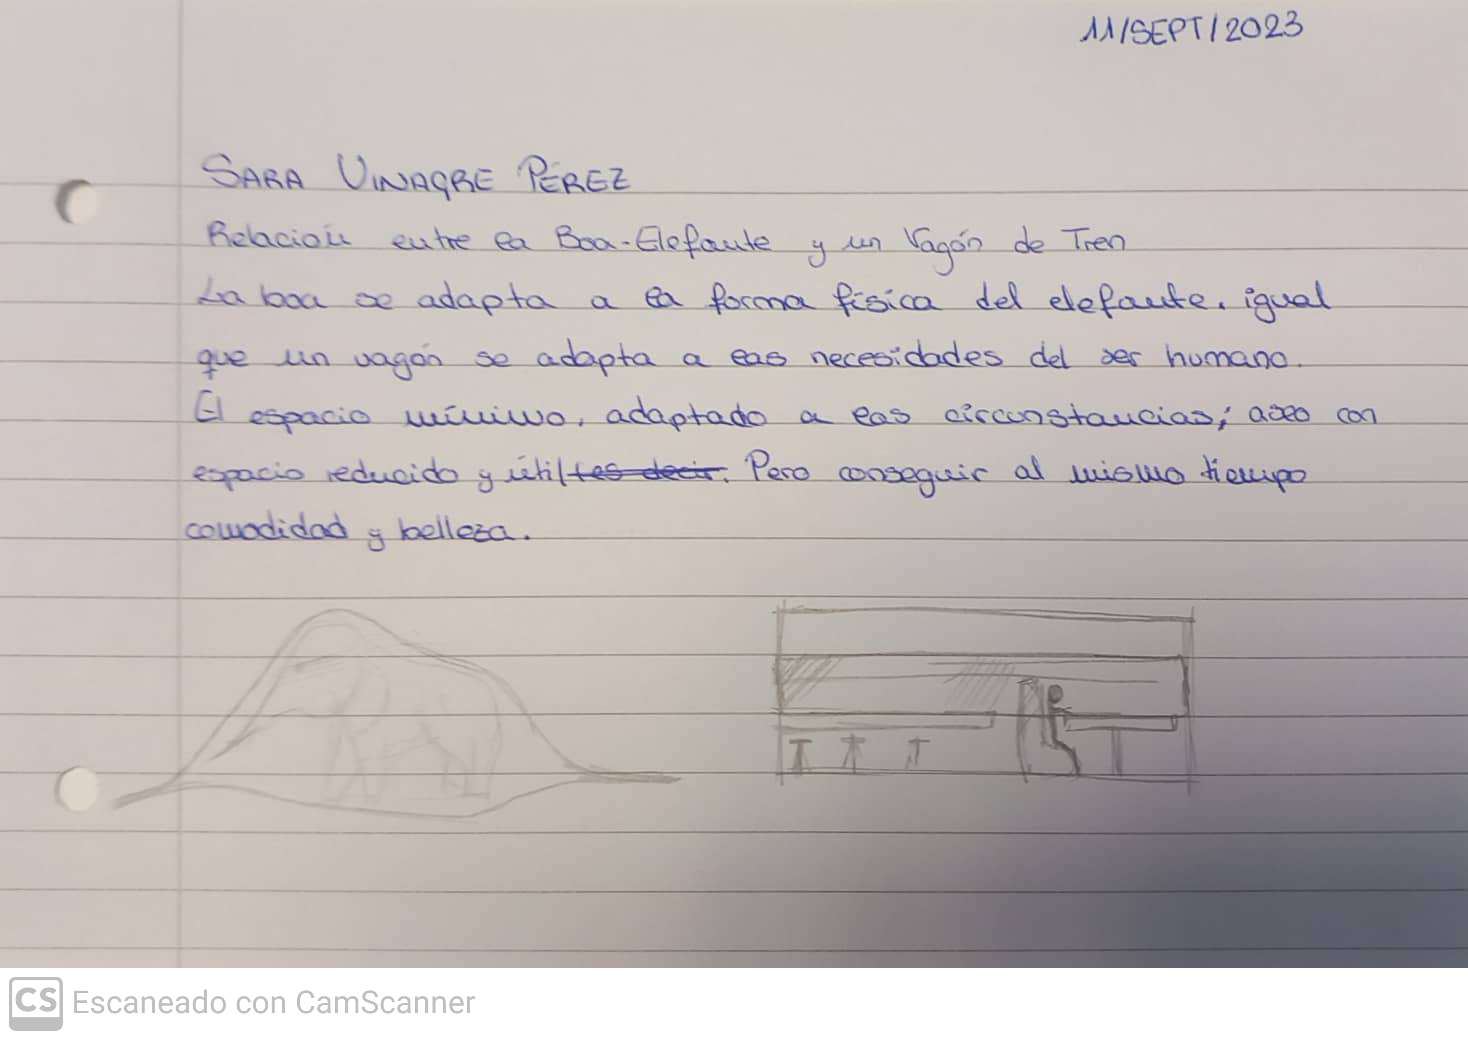 11/SEPT/2023
SARA VINAGRE PÉREZ
Relación entre la Boa-Elefante y un Vagón de Tren
La boa se adapta a la forma física del elefante, igual
que un vagón se adapta a las necesidades del ser humano.
El espacio mínimo, adaptado a las circunstancias; aseo con
espacio reducido y útil, es decir. Pero conseguir al mismo tiempo
comodidad y belleza.
CS Escaneado con CamScanner